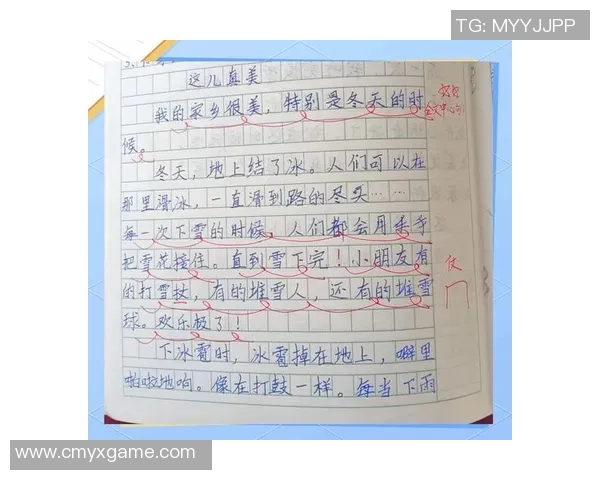 TG: MYYJJPP
这儿真美
我的家乡很美，特别是冬天的时
候。
冬天，地上结了冰。人们可以在
那里滑冰，一直滑到路的尽头……
每一次下雪的时候，人们都会用手
把雪花接住。直到雪下完！小朋友有
的打雪杖，有的堆雪人，还有的堆雪
仗
球。欢乐极了！
下冰雹时，冰雹掉在地上，噼里
啪啦地响。像在打鼓一样。每当下雨
www.cmyxgame.com